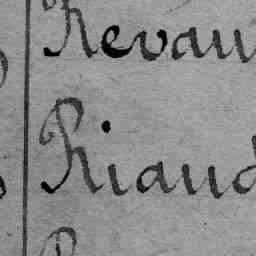 Revau
Riaud